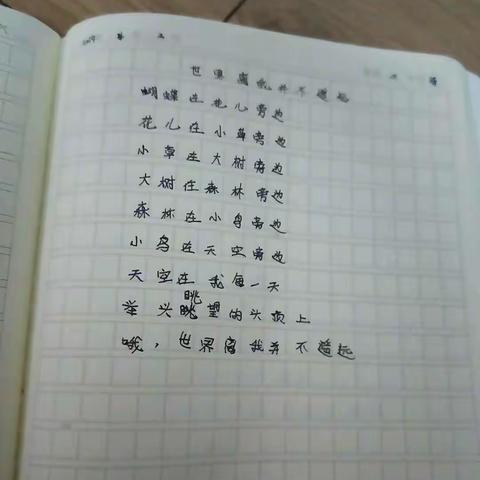 世界离我并不遥远
蝴蝶在花儿旁边
花儿在小草旁边
小草在大树旁边
大树在森林旁边
森林在小鸟旁边
小鸟在天空旁边
天空在我每一天
眺
举头眺望的头顶上
哦，世界离我并不遥远